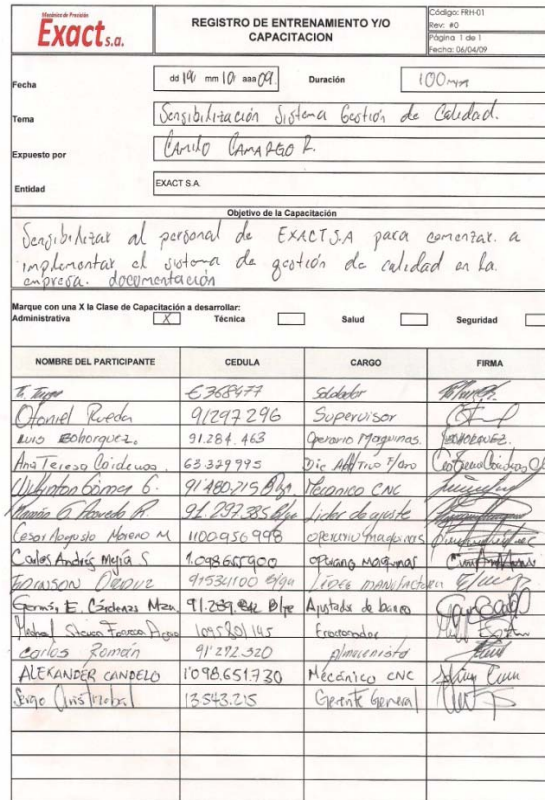 Mecánica de Precisión
Exact s.a.
REGISTRO DE ENTRENAMIENTO Y/O
CAPACITACION
Código: FRH-01
Rev: #0
Página 1 de 1
Fecha: 06/04/09
Fecha dd 19 mm 10 aaa 09. Duración 100 min
Tema Sensibilización Sistema Gestión de Calidad.
Expuesto por Camilo CAMARGO R.
Entidad EXACT S.A.
Objetivo de la Capacitación
Sensibilizar al personal de EXACT S.A para comenzar a
implementar el sistema de gestión de calidad en la
empresa. documentación
Marque con una X la Clase de Capacitación a desarrollar:
Administrativa X Técnica Salud Seguridad
NOMBRE DEL PARTICIPANTE CEDULA CARGO FIRMA
Soldador
Otoniel Rueda 91297296 Supervisor
Luis Bohorquez. 91.284.463 Operario Maquinas. Bohorquez.
Ana Teresa Cárdenas 63.329995
Wilinton Gómez G. 91'480.215 B/ga Mecanico CNC
R. 91.297.385 B/ga Lider de ajuste
Cesar Augusto Moreno M 1100956998 operario maquinas
Carlos Andrés Mejía S 1.098655900 operario Maquinas
LIDER MANUFACTURA
Germán E. Cárdenas Ajustador de banco
109580/145
Carlos Román 91'292.520 almacenista
ALEXANDER CANDELO 1'098.651.730 Mecánico CNC
Sergio Cristizabal 13543.215 Gerente General